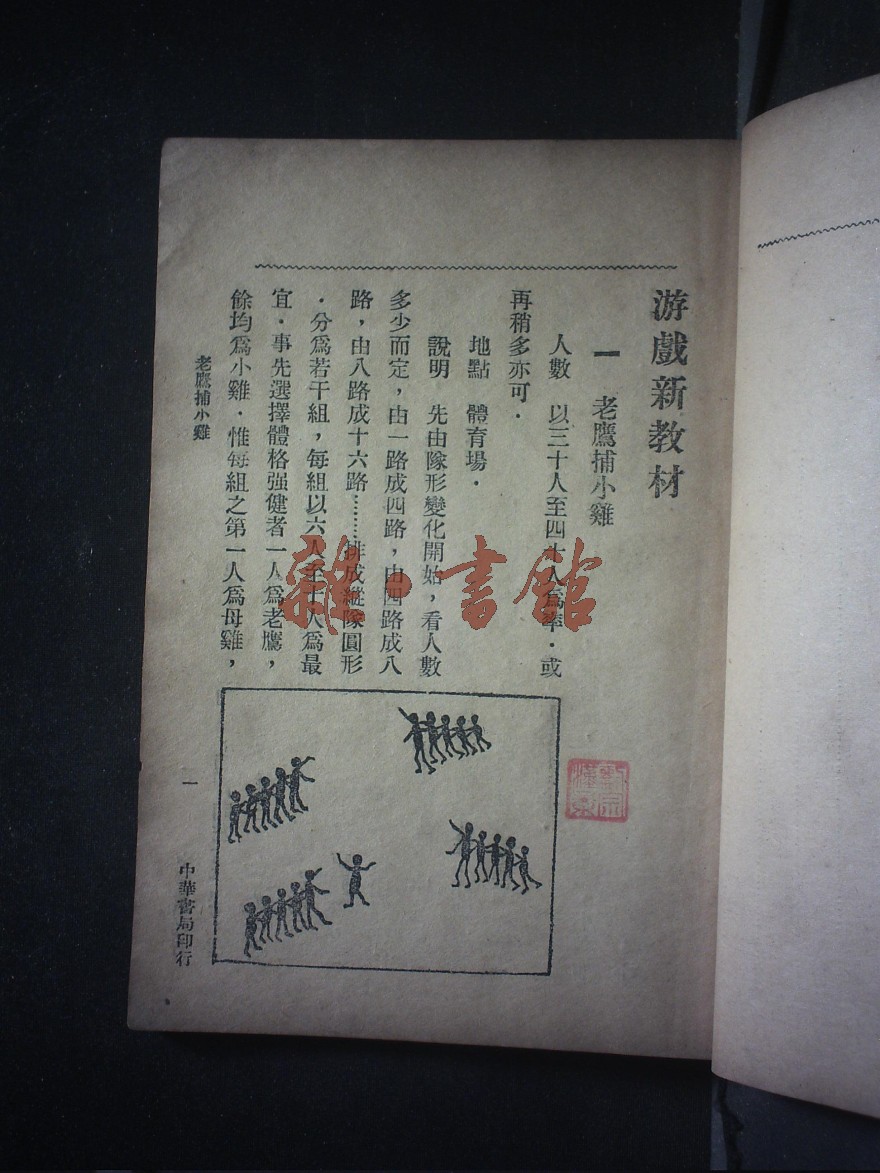 游戲新教材
一　老鷹捕小雞
人數　以三十人至四十人爲率．或
再稍多亦可．
地點　體育場．
說明　先由隊形變化開始，看人數
多少而定，由一路成四路，由四路成八
路，由八路成十六路……排成縱隊圓形
．分爲若干組，每組以六人至十人爲最
宜．事先選擇體格强健者一人爲老鷹，
餘均爲小雞．惟每組之第一人爲母雞，
老鷹捕小雞
一
中華書局印行
雜·書館